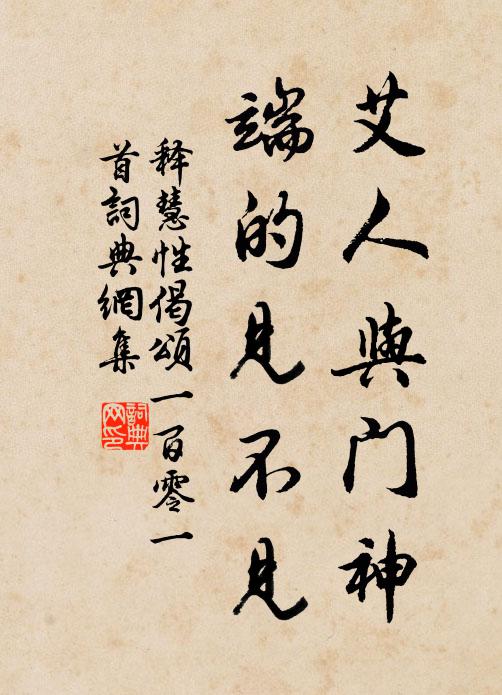 艾人與門神
端的見不見
释慧性偈頌一百零一
首詞典網集
詞典网印